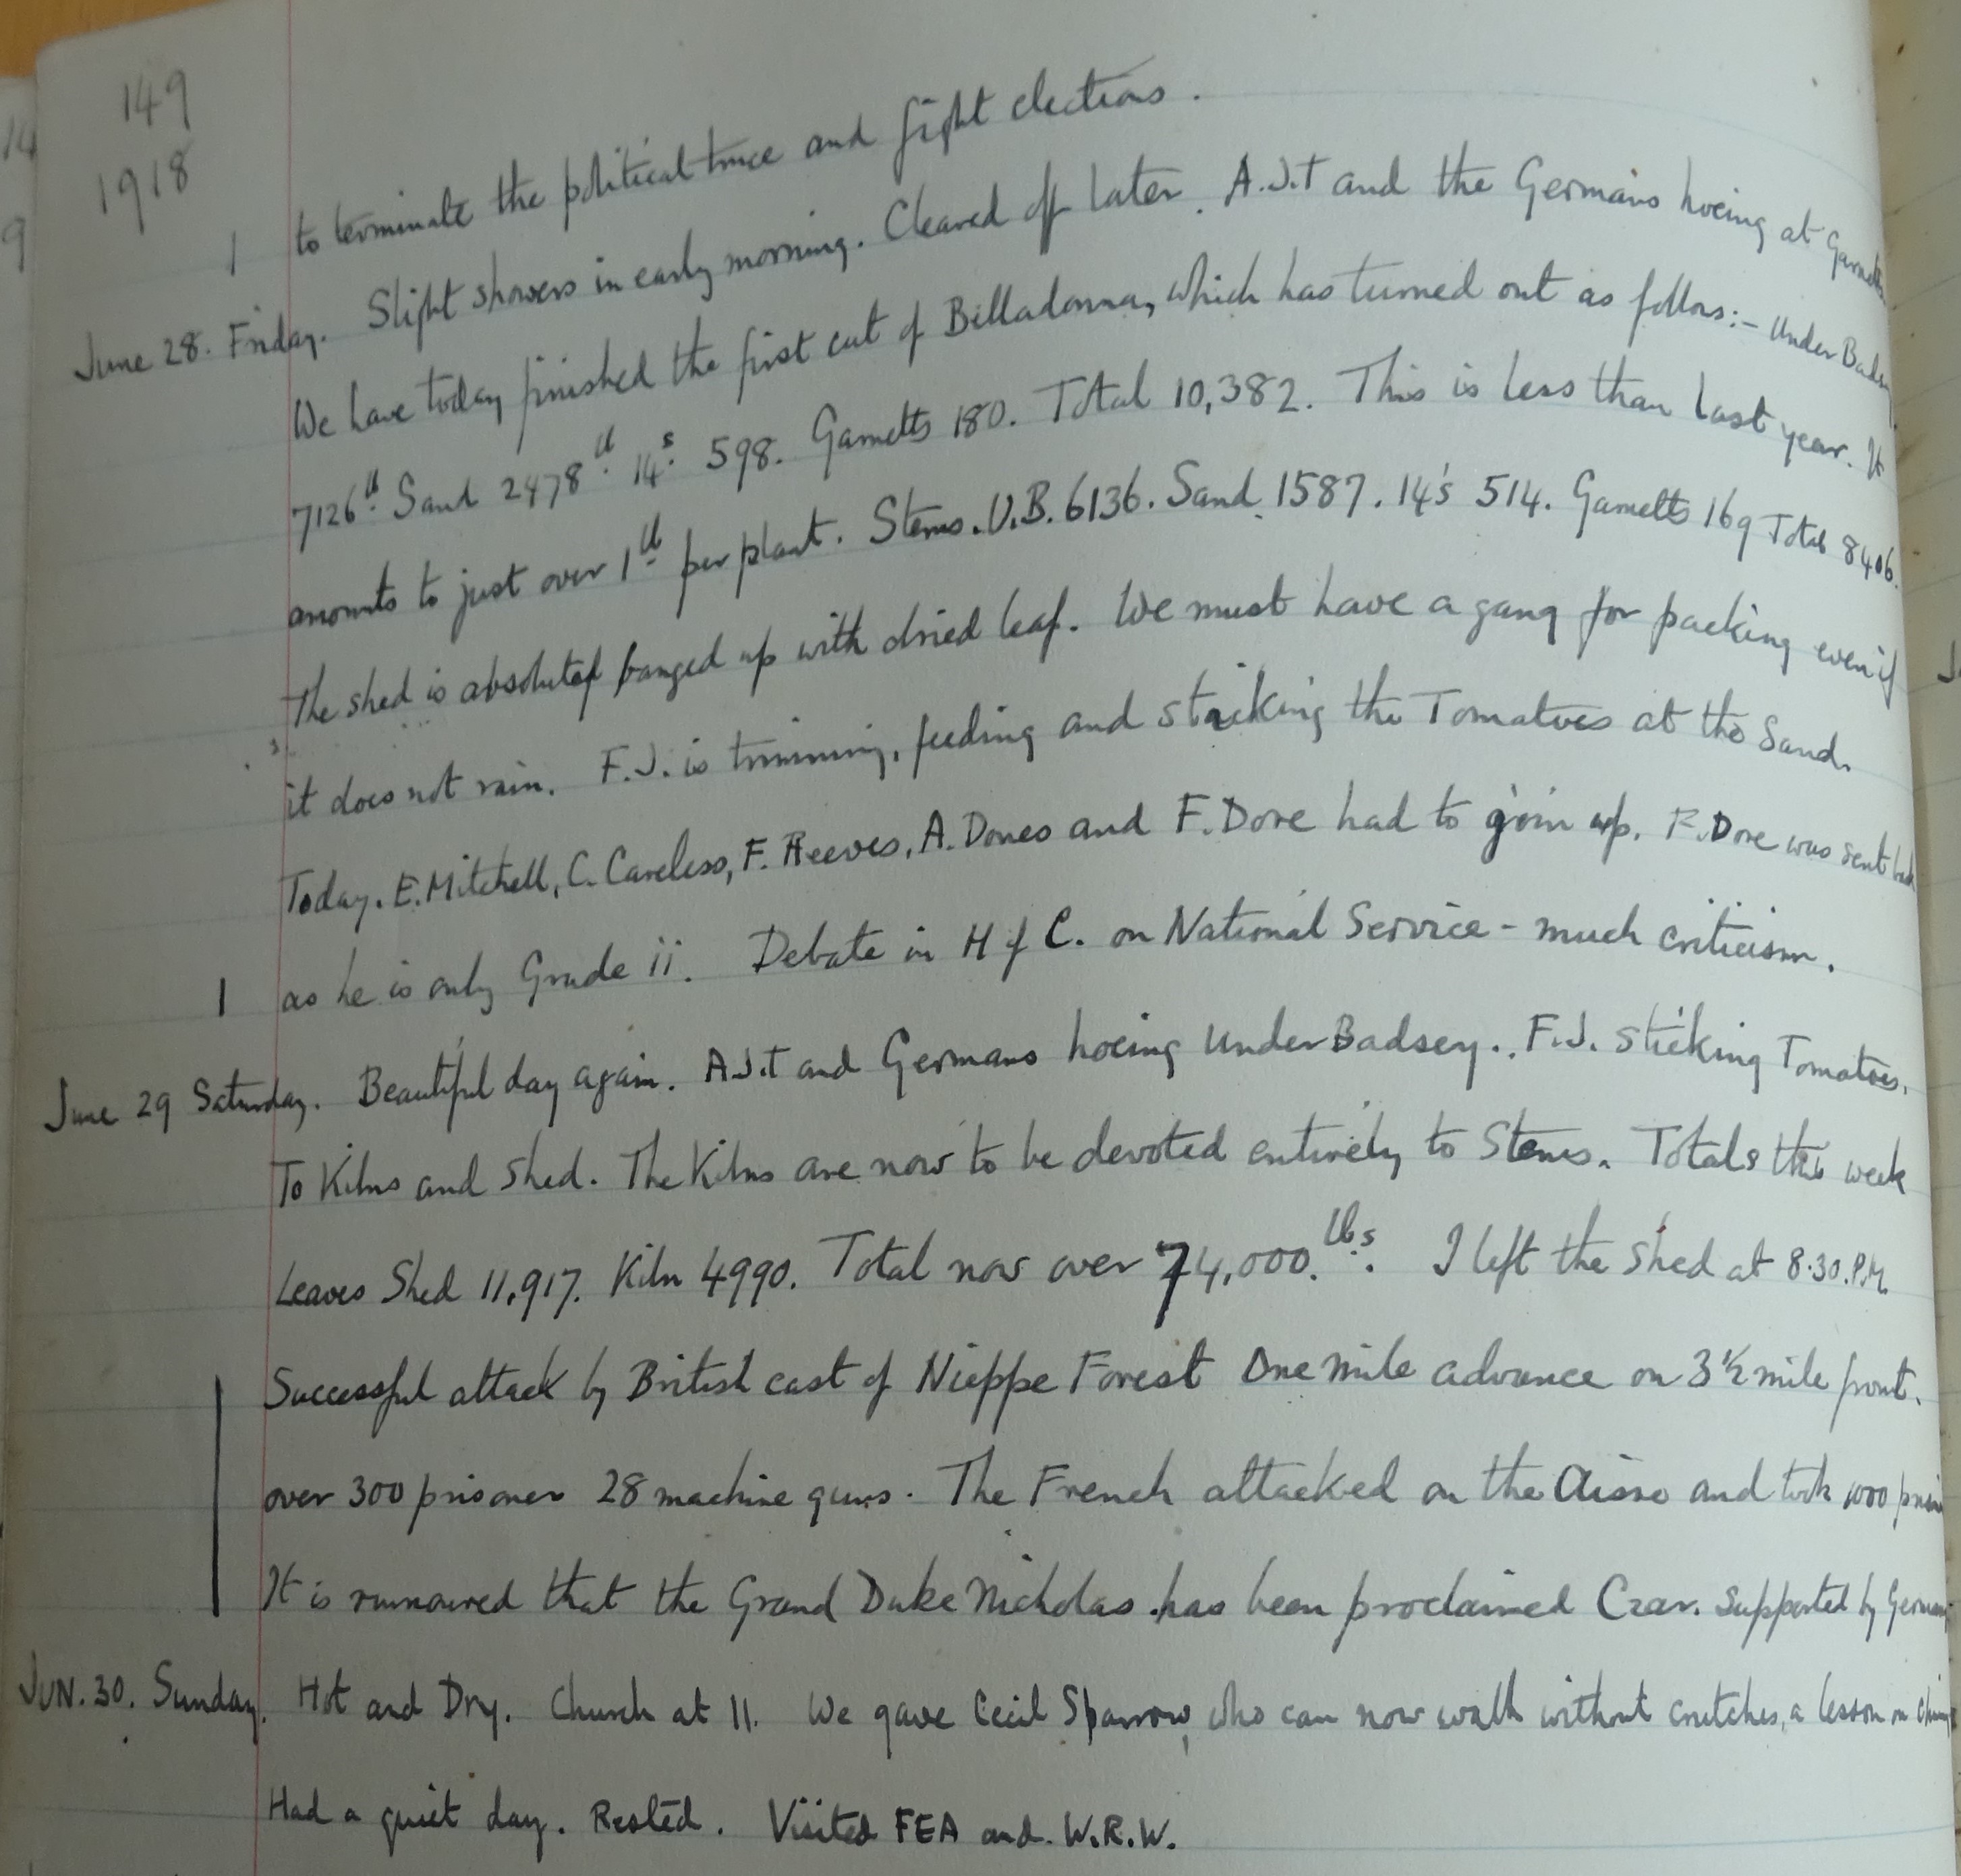 149
1918
to terminate the political truce and fight elections.
June 28. Friday. Slight showers in early morning. Cleared off later. A.J.T and the Germans hoeing at Garnetts.
We have today finished the first cut of Billadonna, which has turned out as follows:- Under Badsey
7126lb. Sand 2478lb. 14s. 598. Garnetts 180. Total 10,382. This is less than last year. It
amounts to just over 1lb per plant. Stems. U.B. 6136. Sand 1587. 14's 514. Garnetts 169 Total 8406.
The shed is absolutely banged up with dried leaf. We must have a gang for packing even if
it does not rain. F.J. is trimming, feeding and sticking the Tomatoes at the Sand.
Today. E. Mitchell, C. Careless, F. Reeves, A. Jones and F. Dore had to join up. F. Dore was sent back
as he is only Grade ii. Debate in H of C. on National Service - much criticism.
June 29 Saturday. Beautiful day again. A.J.T and Germans hoeing Under Badsey. F.J. sticking Tomatoes.
To Kilns and Shed. The Kilns are now to be devoted entirely to Stems. Totals this week
Leaves Shed 11,917. Kiln 4990. Total now over 74,000.lbs. I left the Shed at 8.30.P.M.
Successful attack by British east of Nieppe Forest One mile advance on 3½ mile front.
over 300 prisoners 28 machine guns. The French attacked on the Aisne and took 1000
It is rumoured that the Grand Duke Nicholas has been proclaimed Czar. Supported by Germans
JUN. 30. Sunday. Hot and Dry. Church at 11. We gave Cecil Sparrow, who can now walk without crutches, a lesson on
Had a quiet day. Rested. Visited FEA and W.R.W.